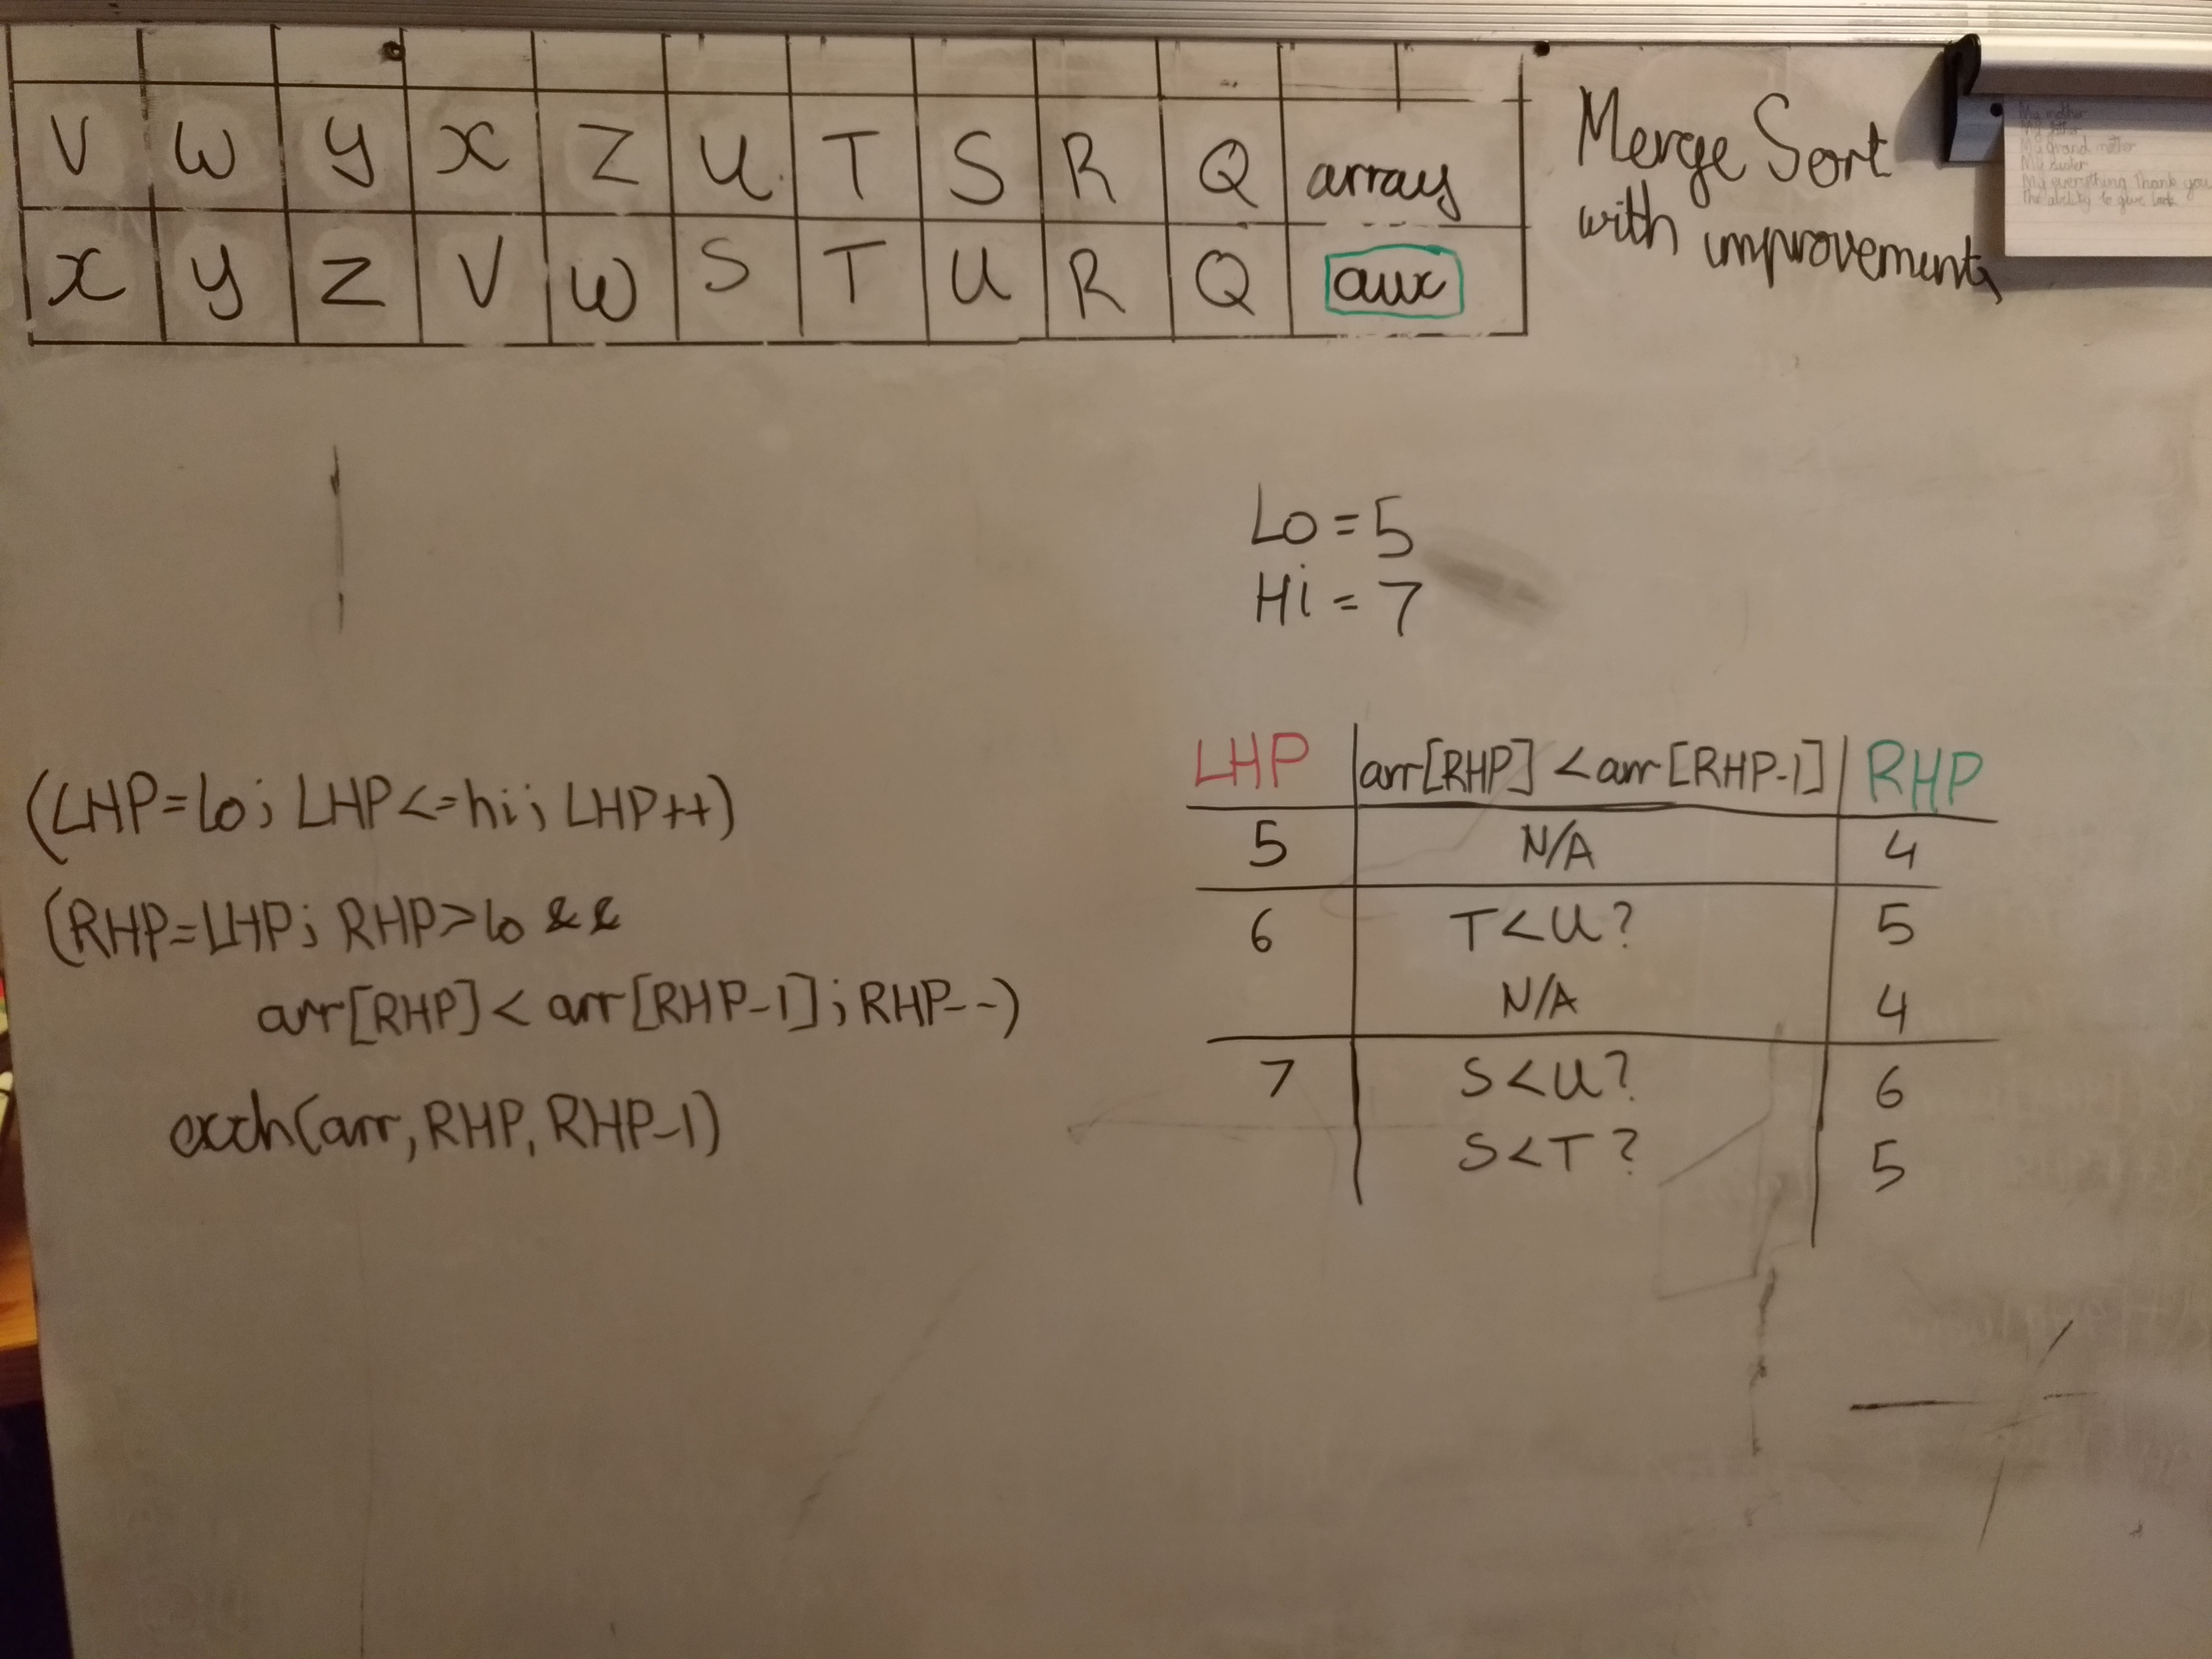 V W Y X Z U T S R Q array
X Y Z V W S T U R Q aux
Merge Sort
with improvements
My mother
My father
My grand mother
My sister
My everything Thank you
The ability to give look
Lo = 5
Hi = 7
(LHP=lo; LHP<=hi; LHP++)
(RHP=LHP; RHP>lo &&
arr[RHP] < arr[RHP-1]; RHP--)
exch(arr, RHP, RHP-1)
LHP arr[RHP] < arr[RHP-1] RHP
5 N/A 4
6 T<U? 5
N/A 4
7 S<U? 6
S<T? 5